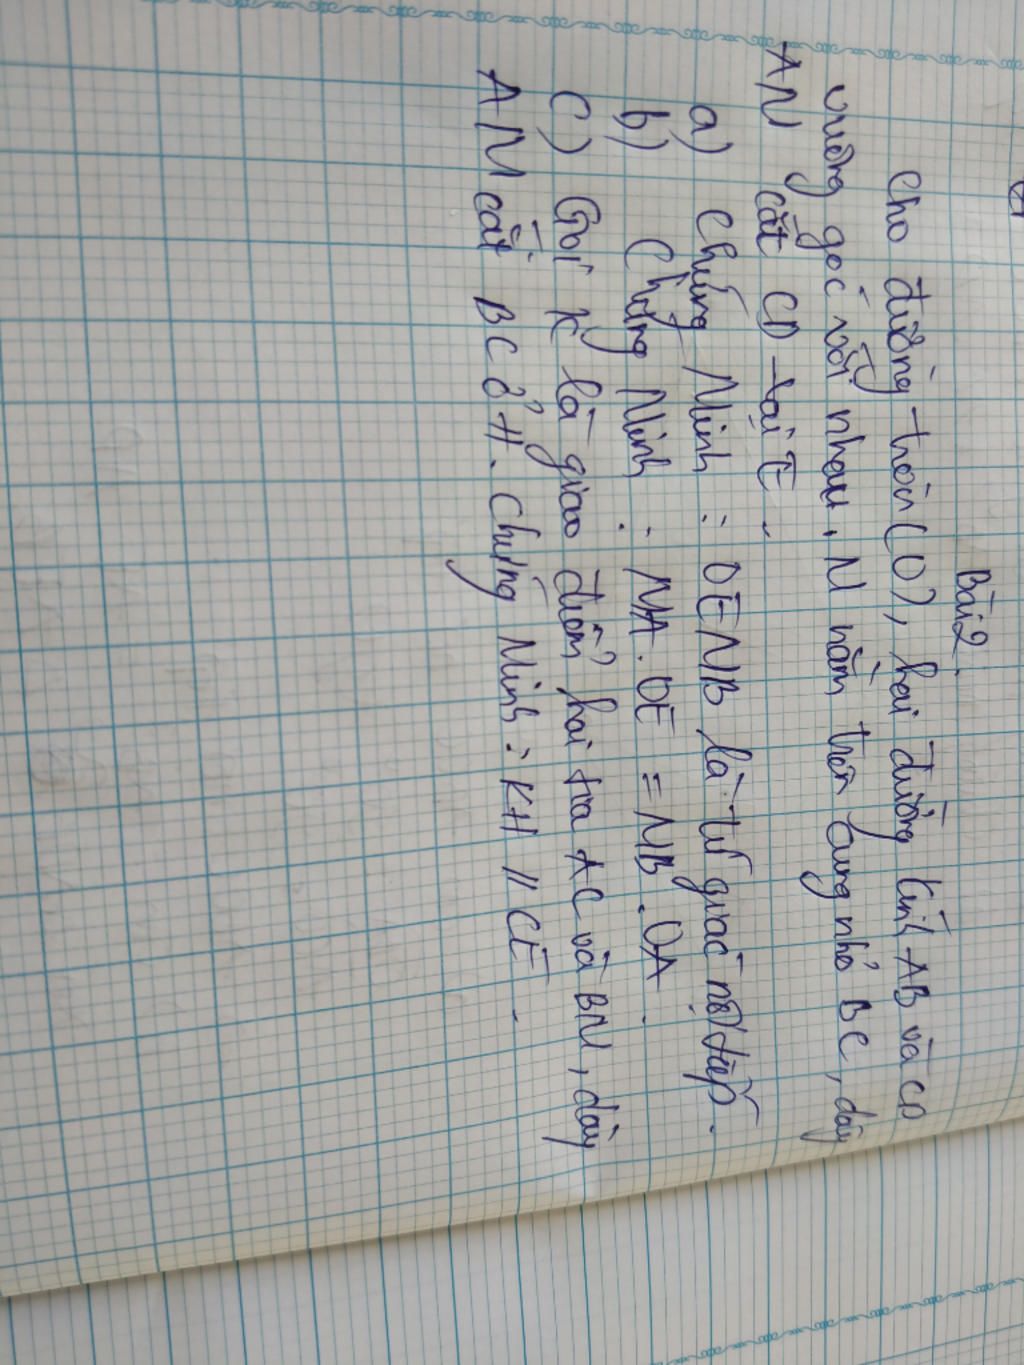 Bài 2.
Cho đường tròn (O), hai đường kính AB và CD
vuông góc với nhau. N nằm trên cung nhỏ BC, dây
AN cắt CD tại E.
a) Chứng Minh : OENB là tứ giác nội tiếp.
b) Chứng Minh : NA.OE = NB.OA.
C) Gọi K là giao điểm hai tia AC và BN, dây
AN cắt BC ở H. Chứng Minh : KH // CE.